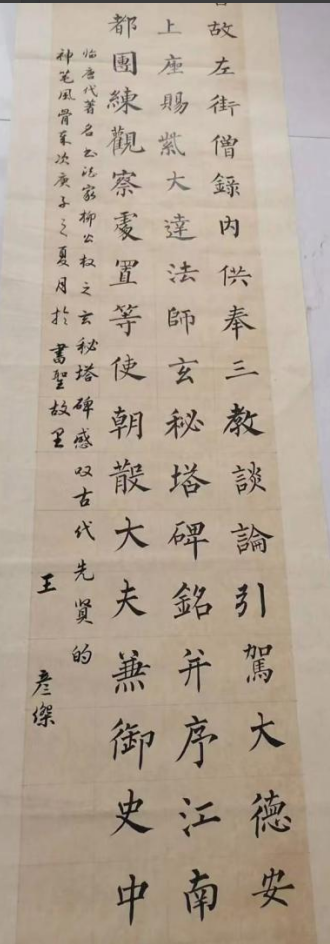 故左街僧錄內供奉三教談論引駕大德安
上座賜紫大達法師玄秘塔碑銘并序江南
都團練觀察處置等使朝散大夫兼御史中
临唐代著名书法家柳公权之玄秘塔碑感叹古代先贤的
神笔风骨 岁次庚子之夏月於書聖故里
王彦